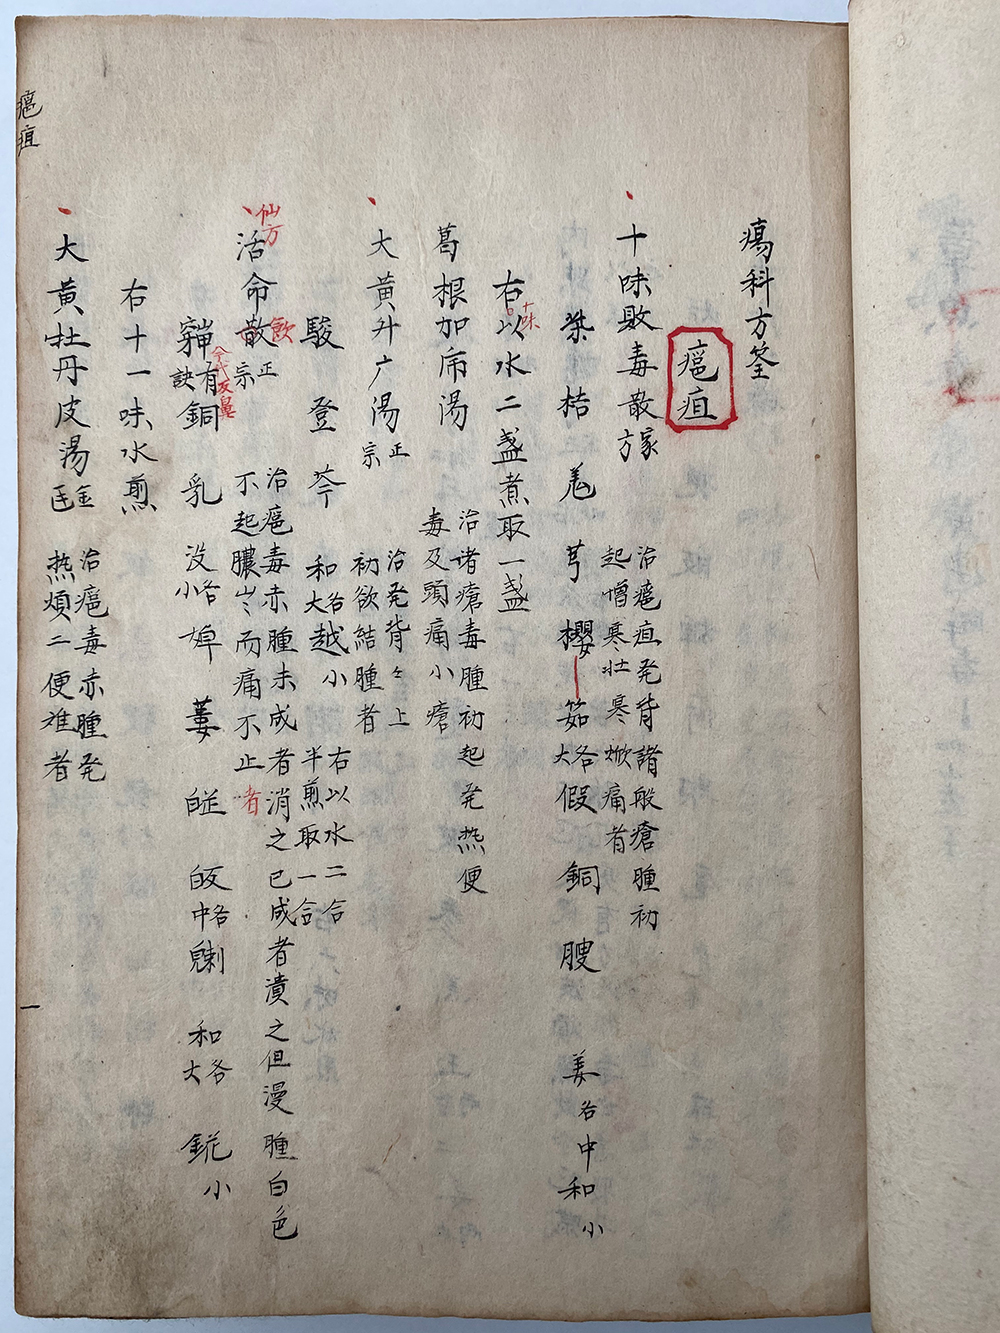 瘍科方筌
癰疽
十味敗毒散家方 治癰疽発背諸般瘡腫初起憎寒壮寒焮痛者
柴 桔 羌 芎 櫻 茹各大 假 銅 膄 姜各中 和小
右以十味水二盞煮取一盞
葛根加朮湯 治諸瘡毒腫初起発熱便毒及頭痛小瘡
大黄升广湯正宗 治発背々上初欲結腫者
駿 登 芩 和各大 越小 右以水二合半煎取一合
仙方活命散飲正宗 治癰毒赤腫未成者消之已成者潰之但漫腫白色不起膿岂而痛不止者
有訣 今代反鼻 銅 乳 没各小 婢 蔞 皈中各 和各大 錵小
右十一味水煎
大黄牡丹皮湯金匡 治癰毒赤腫発熱煩二便难者
癰疽
一